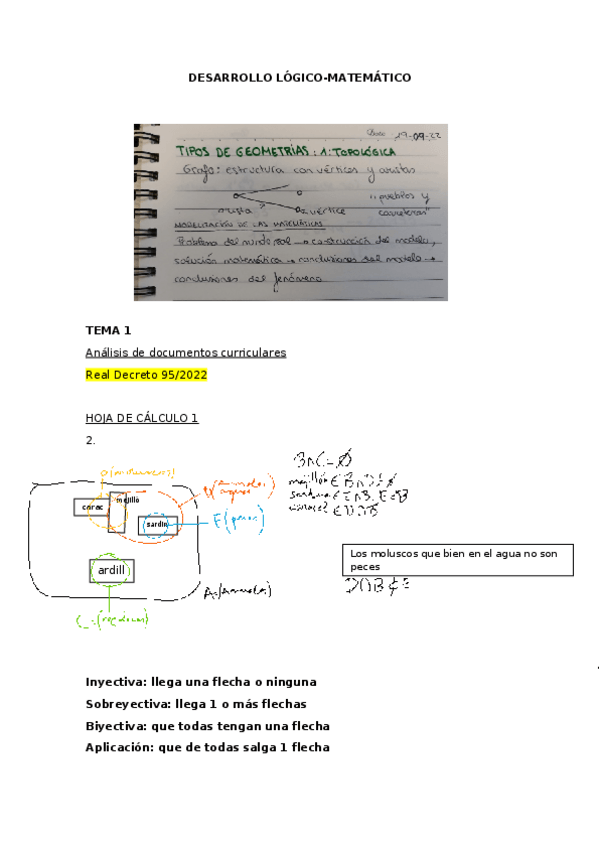 DESARROLLO LÓGICO-MATEMÁTICO
Clase 19-09-22
TIPOS DE GEOMETRÍAS: 1: TOPOLÓGICA
Grafo: estructura con vértices y aristas
"pueblos y
arista vértice carreteras"
MODELIZACIÓN DE LAS MATEMÁTICAS
Problema del mundo real → construcción del modelo,
solución matemática → conclusiones del modelo →
conclusiones del fenómeno
TEMA 1
Análisis de documentos curriculares
Real Decreto 95/2022
HOJA DE CÁLCULO 1
2.
B∩C=Ø
mejillo
carac
sardin
ardill
Los moluscos que bien en el agua no son
peces
Inyectiva: llega una flecha o ninguna
Sobreyectiva: llega 1 o más flechas
Biyectiva: que todas tengan una flecha
Aplicación: que de todas salga 1 flecha